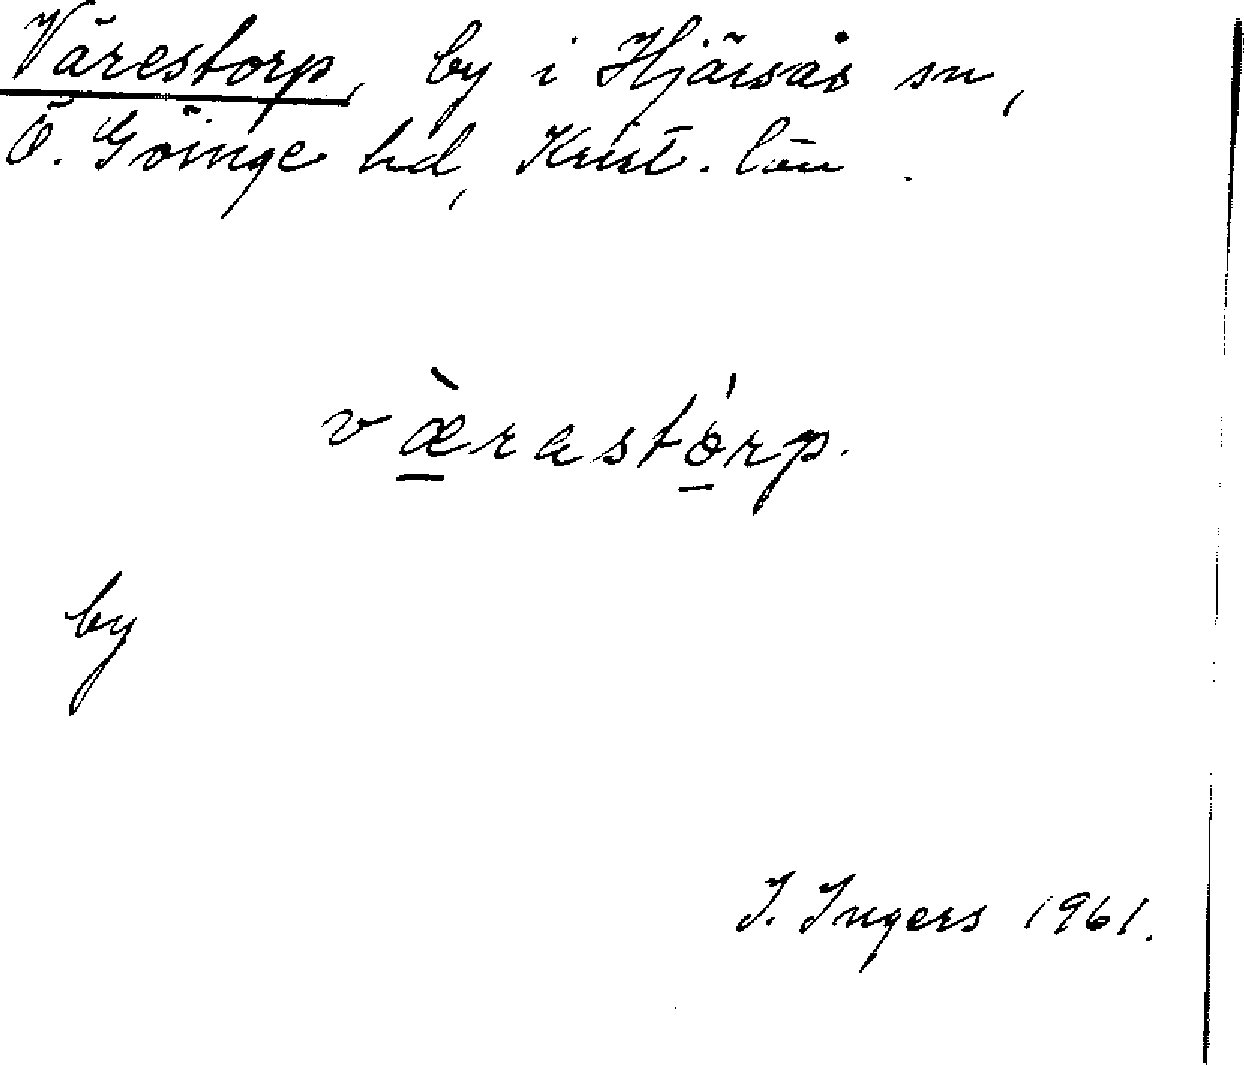 Värestorp, by i Hjärsås sn,
Ö. Göinge hd, Krist. län.
væ̀rastórp.
by
I. Ingers 1961.